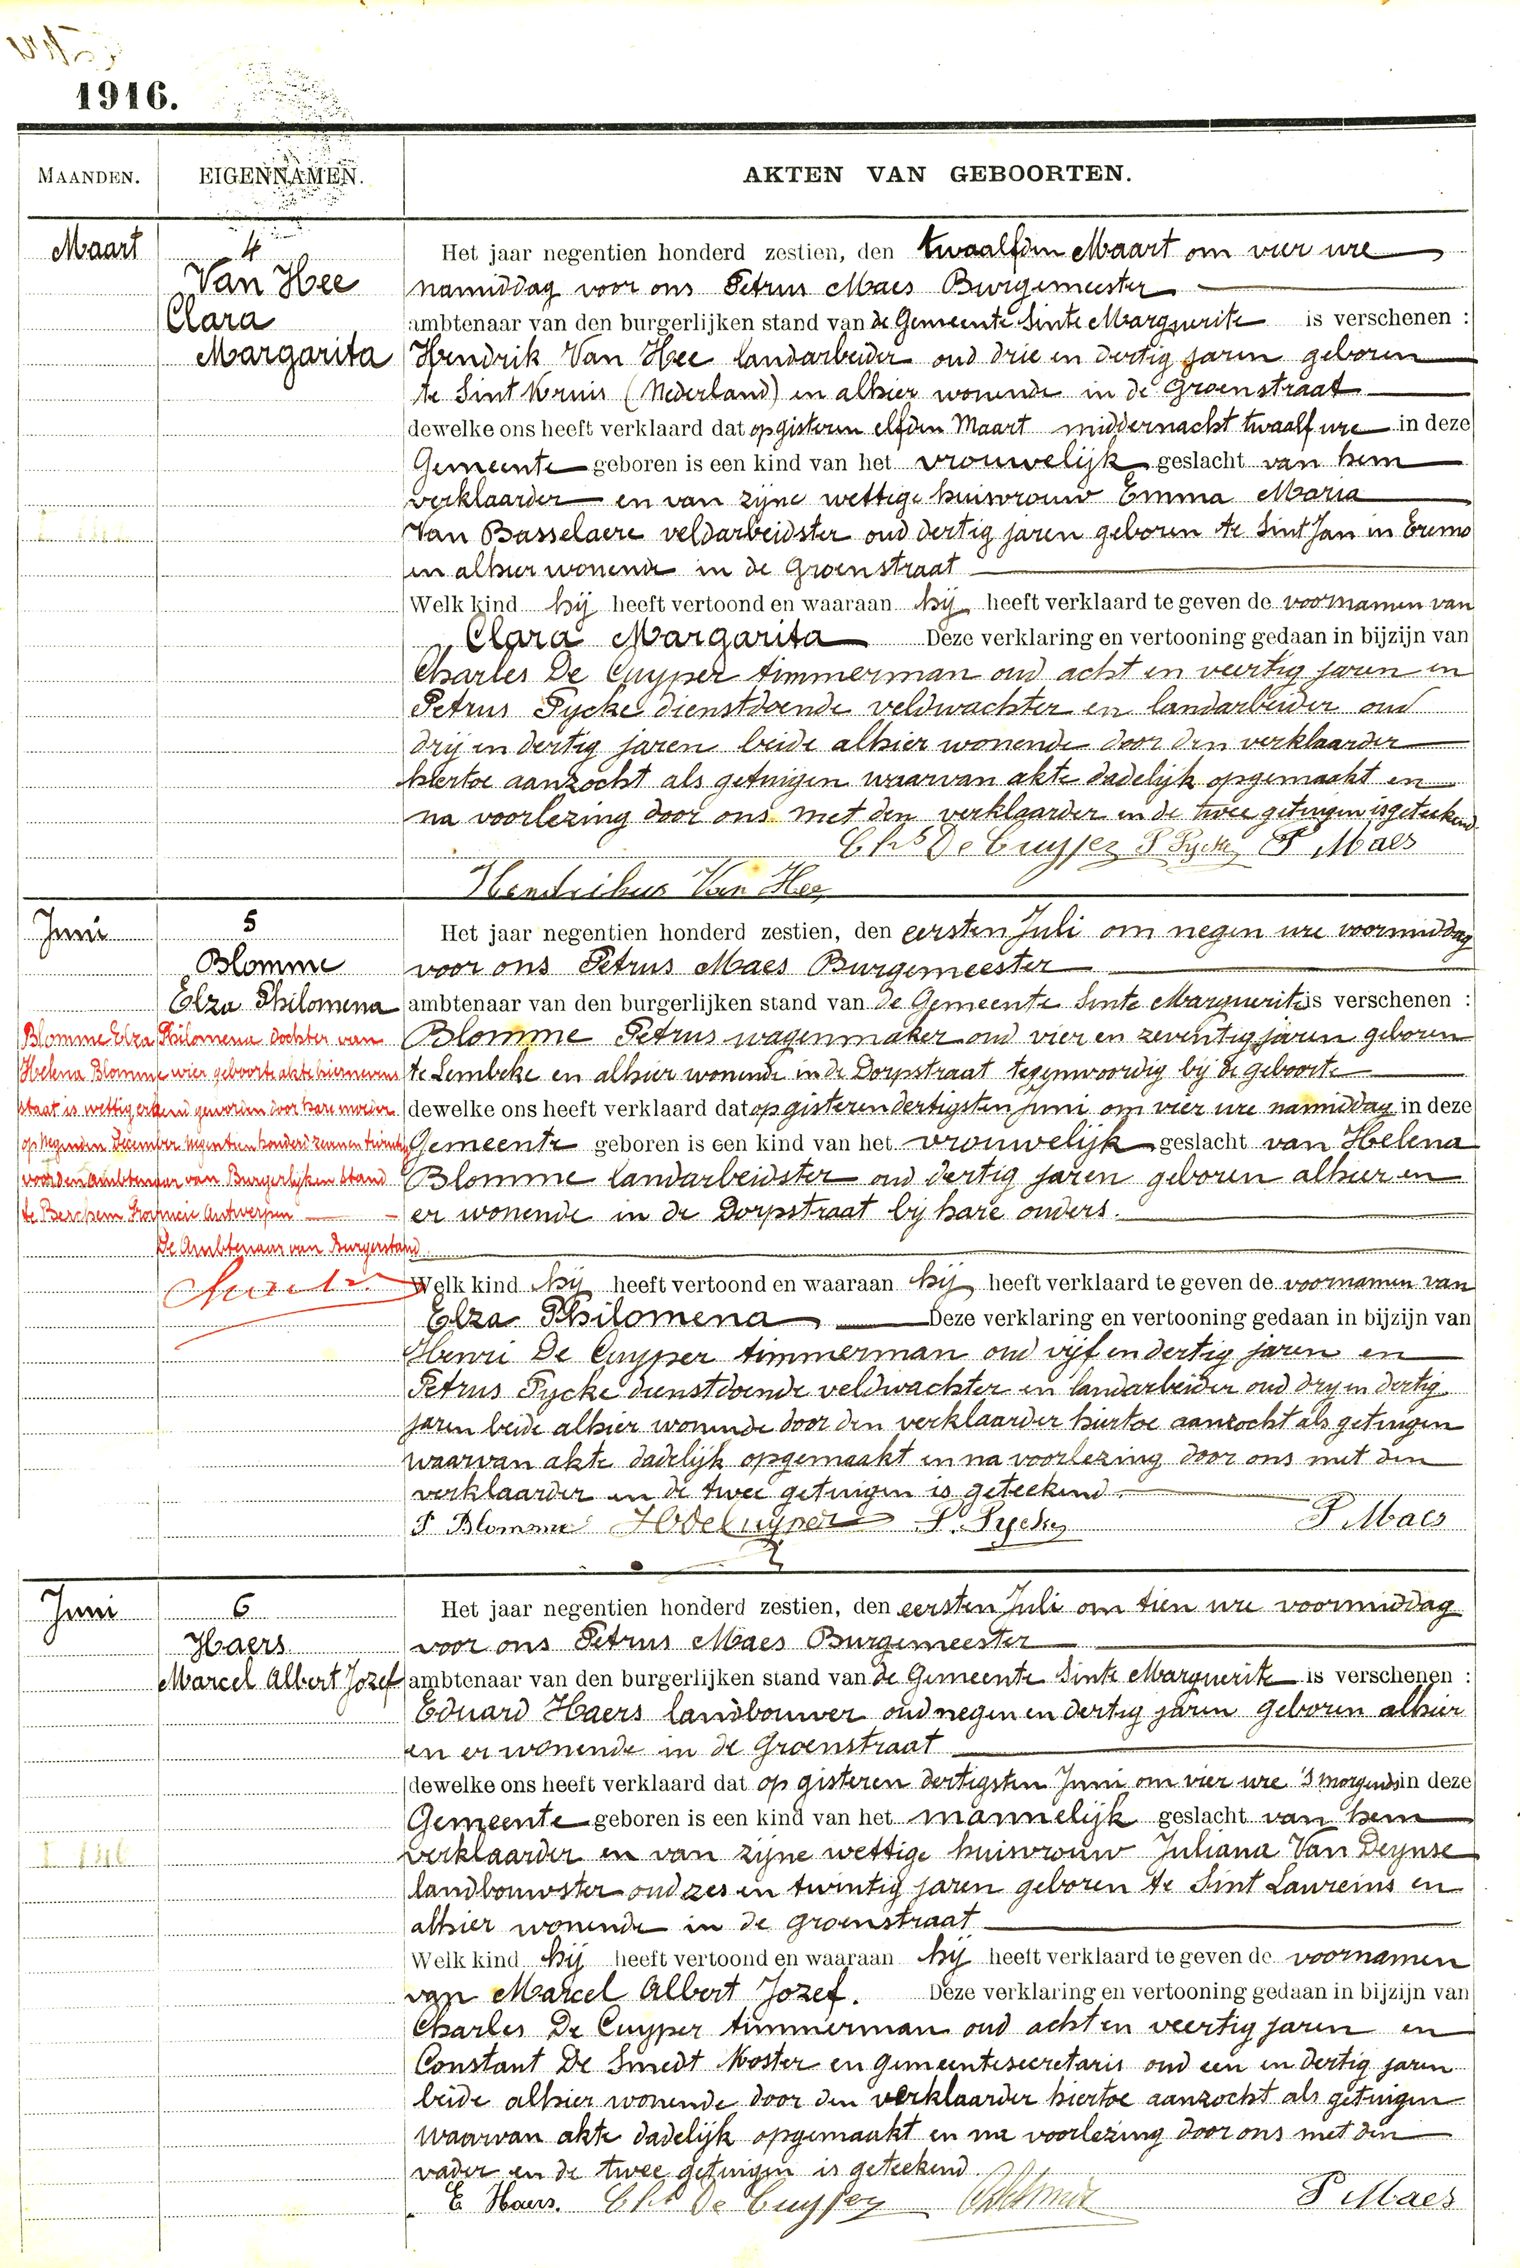 1916.
MAANDEN. EIGENNAMEN. AKTEN VAN GEBOORTEN.
Maart
4
Van Hee
Clara
Margarita
Het jaar negentien honderd zestien, den twaalfden Maart om vier ure
namiddag voor ons Petrus Maes Burgemeester
ambtenaar van den burgerlijken stand van de Gemeente Sinte Marguerite is verschenen :
Hendrik Van Hee landarbeider oud drie en dertig jaren geboren
te Sint Kruis (Nederland) en alhier wonende in de Groenstraat
dewelke ons heeft verklaard dat op gisteren elfden Maart middernacht twaalf ure in deze
Gemeente geboren is een kind van het vrouwelijk geslacht van hem
verklaarder en van zijne wettige huisvrouw Emma Maria
Van Basselaere veldarbeidster oud dertig jaren geboren te Sint Jan in Eremo
en alhier wonende in de Groenstraat
Welk kind hij heeft vertoond en waaraan hij heeft verklaard te geven de voornamen van
Clara Margarita Deze verklaring en vertooning gedaan in bijzijn van
Charles De Cuyper timmerman oud acht en veertig jaren en
Petrus Pycke dienstdoende veldwachter en landarbeider oud
drij en dertig jaren beide alhier wonende door den verklaarder
hiertoe aanzocht als getuigen waarvan akte dadelijk opgemaakt en
na voorlezing door ons met den verklaarder en de twee getuigen is geteekend
Chs De Cuyper P Pycke P Maes
Hendrikus Van Hee
Juni
5
Blomme
Elza Philomena
Blomme Elza Philomena dochter van
Helena Blomme wier geboorte akte hiernevens
staat is wettig erkend geworden door hare moeder
op negenden December negentien honderd zeven en twintig
voor den ambtenaar van Burgerlijken stand
te Berchem Provincie Antwerpen
De Ambtenaar van Burgerstand
Het jaar negentien honderd zestien, den eersten Juli om negen ure voormiddag
voor ons Petrus Maes Burgemeester
ambtenaar van den burgerlijken stand van de Gemeente Sinte Marguerite is verschenen :
Blomme Petrus wagenmaker oud vier en zeventig jaren geboren
te Lembeke en alhier wonende in de Dorpstraat tegenwoordig bij de geboorte
dewelke ons heeft verklaard dat op gisteren dertigsten Juni om vier ure namiddag in deze
Gemeente geboren is een kind van het vrouwelijk geslacht van Helena
Blomme landarbeidster oud dertig jaren geboren alhier en
er wonende in de Dorpstraat bij hare ouders.
Welk kind hij heeft vertoond en waaraan hij heeft verklaard te geven de voornamen van
Elza Philomena Deze verklaring en vertooning gedaan in bijzijn van
Henri De Cuyper timmerman oud vijf en dertig jaren en
Petrus Pycke dienstdoende veldwachter en landarbeider oud dry en dertig
jaren beide alhier wonende door den verklaarder hiertoe aanzocht als getuigen
waarvan akte dadelijk opgemaakt en na voorlezing door ons met den
verklaarder en de twee getuigen is geteekend.
P Blomme H De Cuyper P. Pycke P Maes
Juni
6
Haers
Marcel Albert Jozef
Het jaar negentien honderd zestien, den eersten Juli om tien ure voormiddag
voor ons Petrus Maes Burgemeester
ambtenaar van den burgerlijken stand van de Gemeente Sinte Marguerite is verschenen :
Eduard Haers landbouwer oud negen en dertig jaren geboren alhier
en er wonende in de Groenstraat
dewelke ons heeft verklaard dat op gisteren dertigsten Juni om vier ure 's morgends in deze
Gemeente geboren is een kind van het mannelijk geslacht van hem
verklaarder en van zijne wettige huisvrouw Juliana Van Deynse
landbouwster oud zes en twintig jaren geboren te Sint Laureins en
alhier wonende in de groenstraat
Welk kind hij heeft vertoond en waaraan hij heeft verklaard te geven de voornamen
van Marcel Albert Jozef. Deze verklaring en vertooning gedaan in bijzijn van
Charles De Cuyper timmerman oud acht en veertig jaren en
Constant De Smedt Koster en gemeentesecretaris oud een en dertig jaren
beide alhier wonende door den verklaarder hiertoe aanzocht als getuigen
waarvan akte dadelijk opgemaakt en na voorlezing door ons met den
vader en de twee getuigen is geteekend
E Haers. Chs De Cuyper P Maes